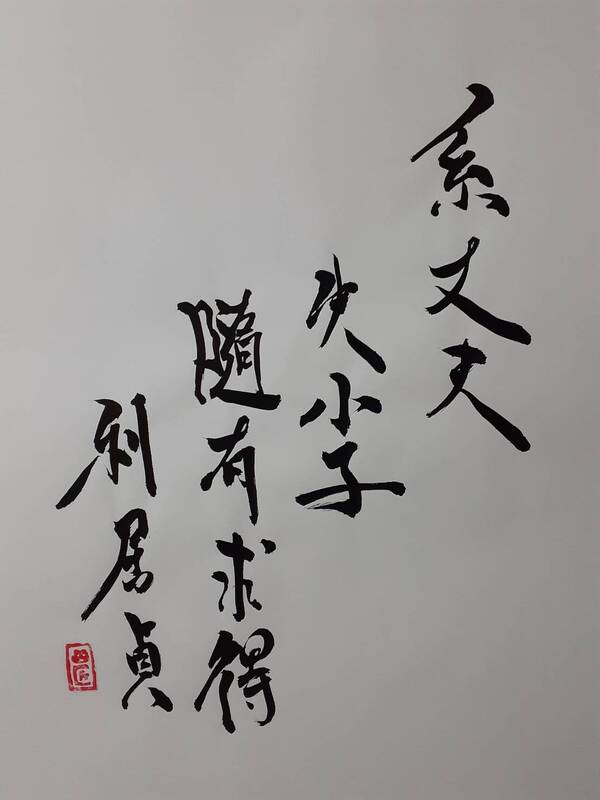 系丈夫
失小子
隨有求得
利居貞